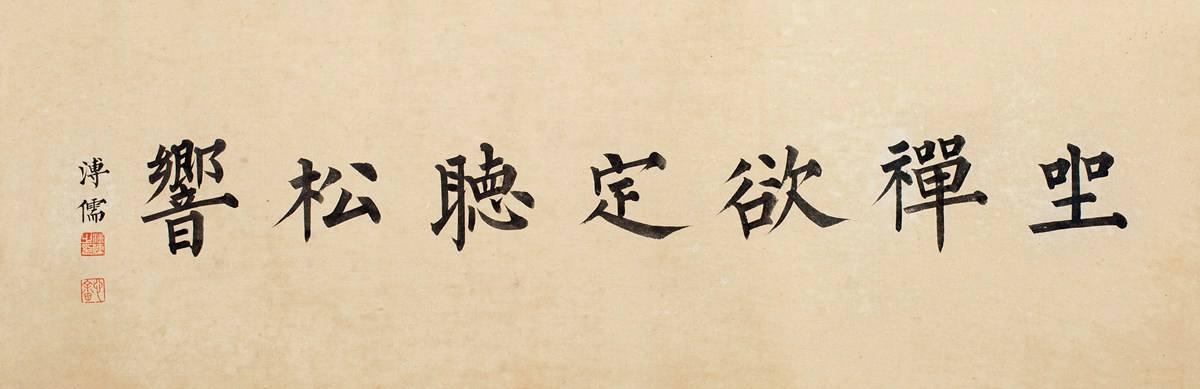 坐禪欲定聽松響
溥儒
心畬